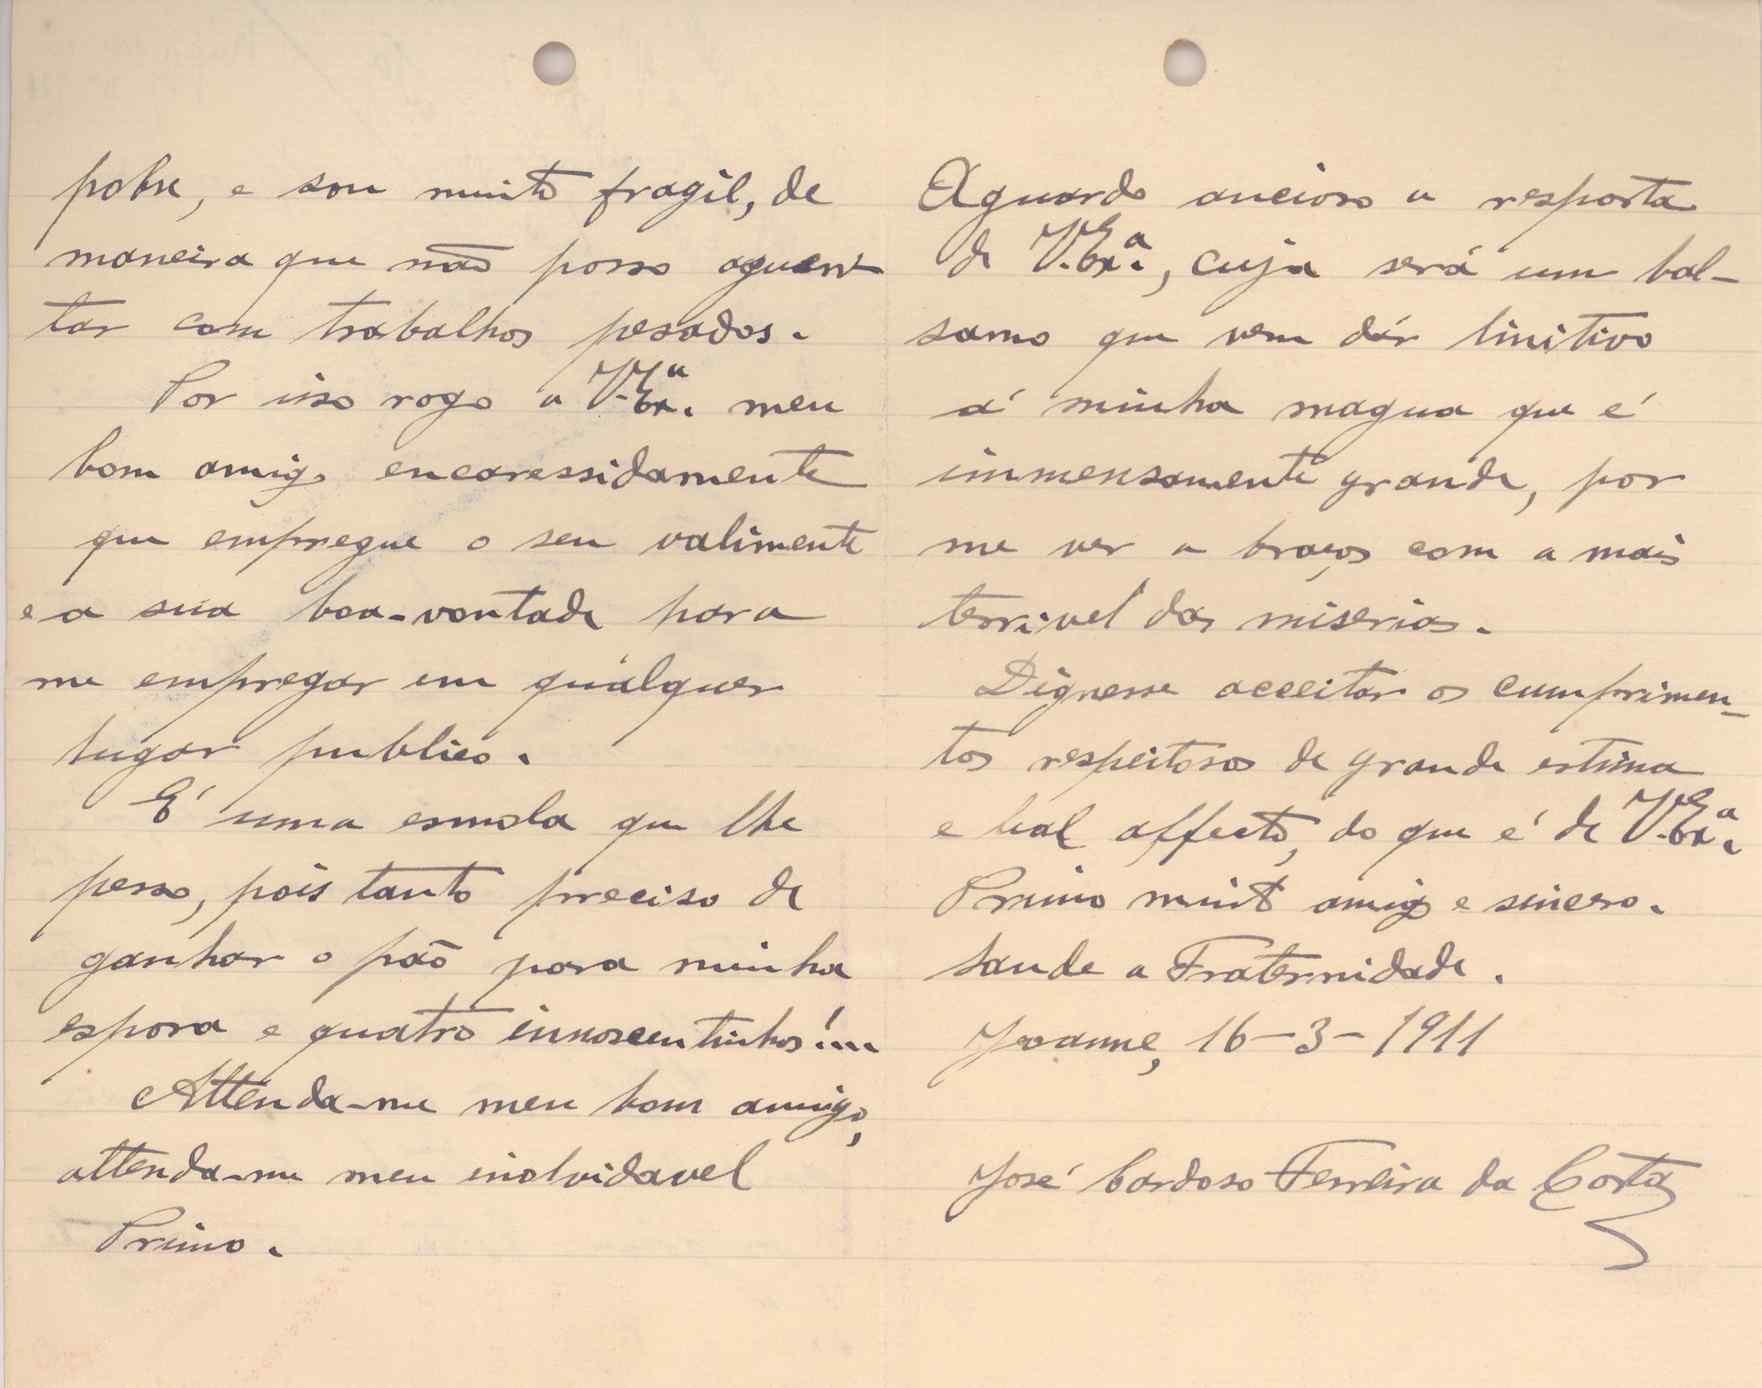 pobre, e sou muito fragil, de
maneira que não posso aguen-
tar com trabalhos pesados.
Por isso rogo a V. Ex.ª meu
bom amigo encaressidamente
que empregue o seu valimente
e a sua boa-vontade para
me empregar em qualquer
lugar publico.
É uma esmola que lhe
pesso, pois tanto preciso de
ganhar o pão para minha
esposa e quatro innoscentinhos!...
Attenda-me meu bom amigo,
attenda-me meu inolvidavel
Primo.
Aguardo ancioso a resposta
de V. Ex.ª, cuja será um bal-
samo que vem dár linitivo
á minha magua que é
immensamente grande, por
me ver a braços com a mais
terrivel das miserias.
Dignesse acceitar os cumprimen-
tos respeitosos de grande estima
e leal affecto, do que é de V. Ex.ª
Primo muito amigo e sincero.
Saude e Fraternidade.
Joanne, 16-3-1911
José Cardoso Ferreira da Costa